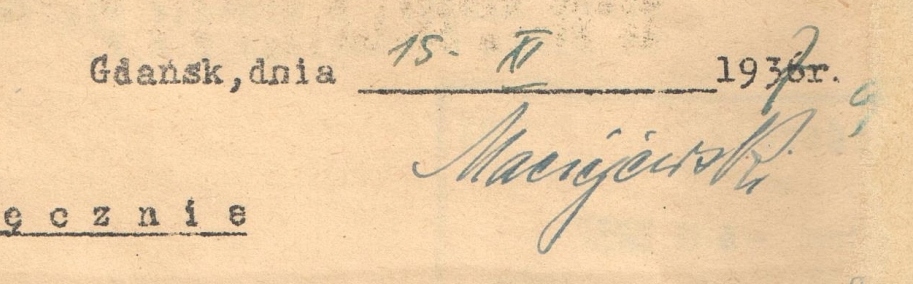 Gdańsk,dnia 15. XI 1937r.
Maciejewski
ęcznie